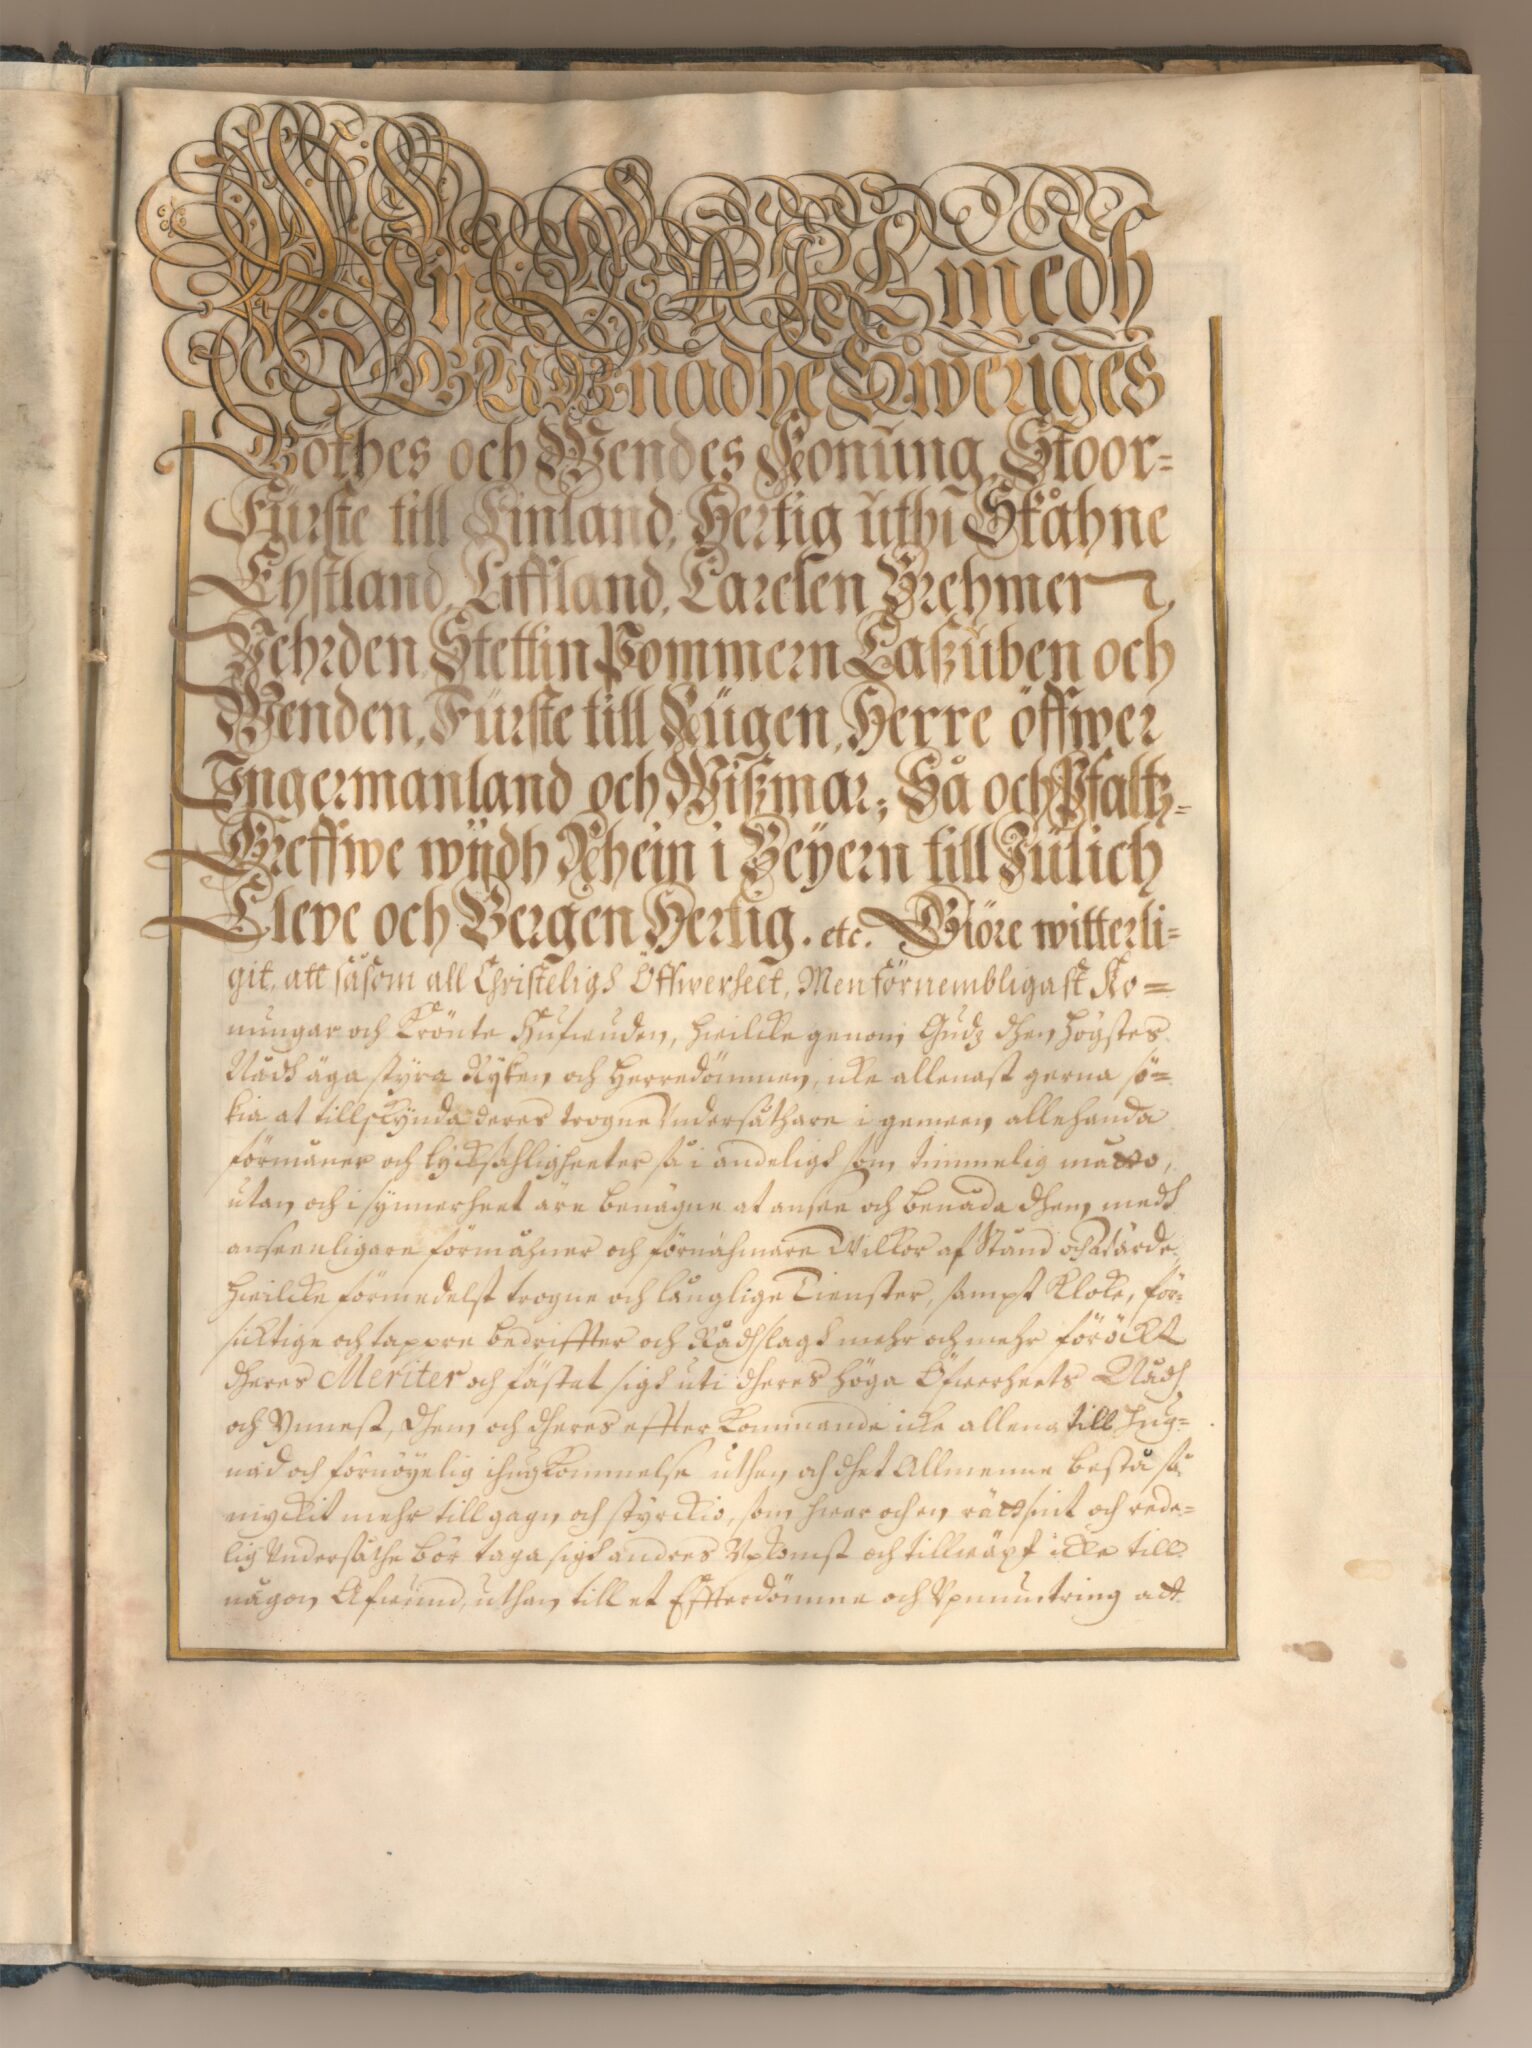 Wii CARL medh
GUDZ nådhe Sweriges
Göthes och Wendes Konüng, Stoor=
Fürste till Finland, Hertig ūthi Skåhne
Ehstland, Liffland, Carelen Brehmen
Vehrden, Stettin Pommern Caßüben och
Wenden, Fürste till Rügen, Herre öffwer
Ingermanland och Wißmar; Så och Pfaltz=
Greffwe wijdh Rhein i Beÿern till Jülich
Cleve och Bergen Hertig. etc. Giöre witterli=
git, att såsom all Christeligh Öffwerheet, Men förnembligast Ko=
nungar och Crönte Hufwuden, hwilcke genom Gudz dhen högstes
Nådh äga styra Ryken och Herredömmen, icke allenast gerna sö=
kia at tillskynda deres trogne Undersåthare i gemeen allehanda
förmåner och lycksahligheeter så i andeligh som timmelig motto,
utan och i synnerheet äre benägne at ansee och benåda dhem medh
anseenligare förmåhner och förnähmare Wilkor af Stånd och Wärde,
hwilcka förmedelst trogne och långlige Tienster, sampt kloke, för=
sichtige och tappre bedriffter och Rådhslagh mehr och mehr föröckt
dheres Meriter och fästat sigh uti dheres höga Öfwerheets Nådh
och Ynnest, dhem och dheres effterkommande icke allena till Hug=
nad och förnöyelig ihugkommelse uthan och dhet Allmenne bästa så
myckit mehr till gagn och styrckio, som hwar och en rättsint och rede=
lig Undersåthe bör taga sigh andres Upkomst och tillwäxt icke till
någon Afwund, uthan till et Effterdömme och Upmuntring att